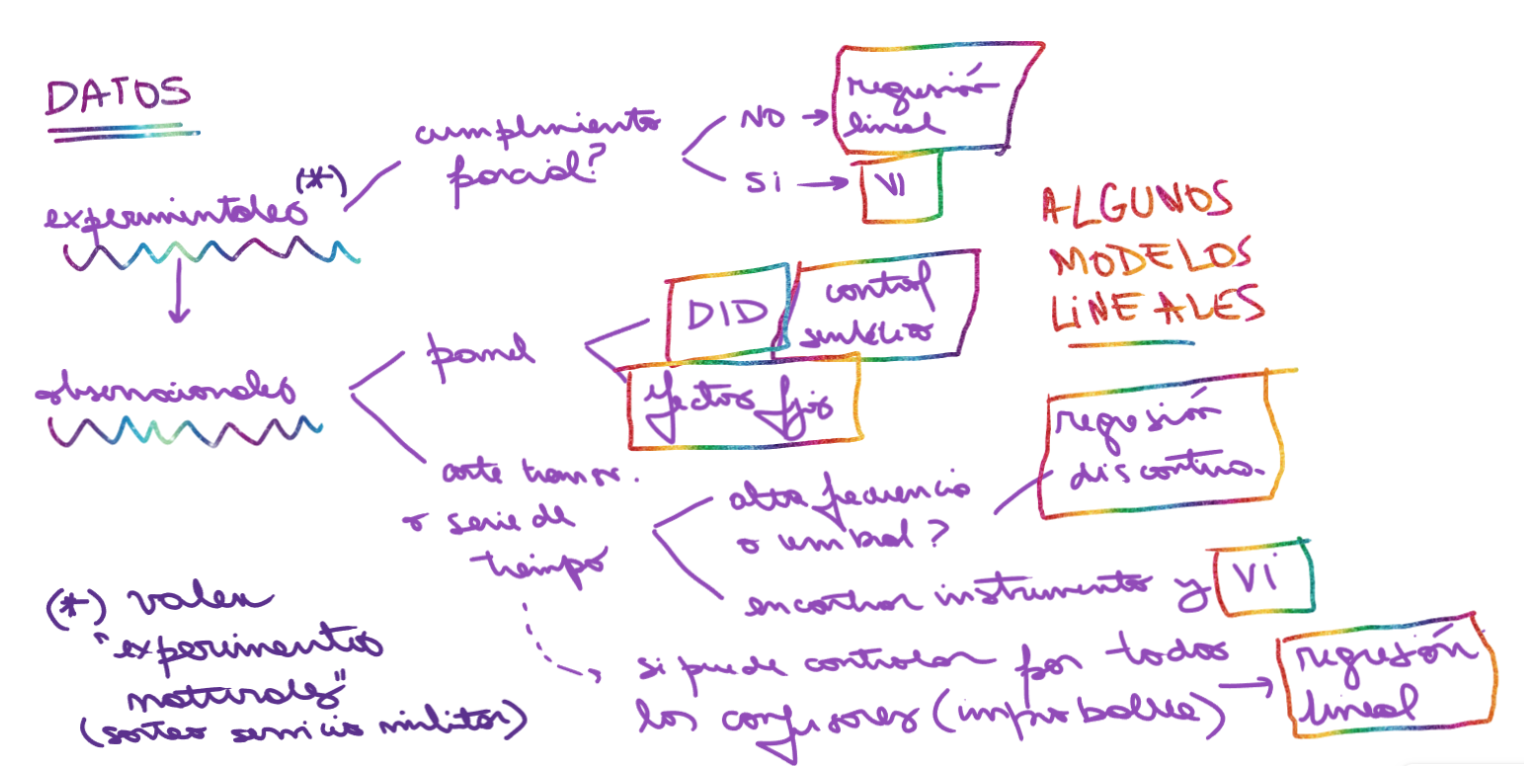 DATOS
experimentales (*)
cumplimiento
parcial?
NO →
regresión
lineal
Si →
VI
ALGUNOS
MODELOS
LINEALES
observacionales
panel
DID
control
sintético
efectos fijos
corte transv.
o serie de
tiempo
alta frecuencia
o umbral?
regresión
discontinua.
encontrar instrumento y
Vi
si puede controlar por todos
los confusores (improbable) →
regresión
lineal
(*) valen
"experimentos
naturales"
(sorteo servicio militar)